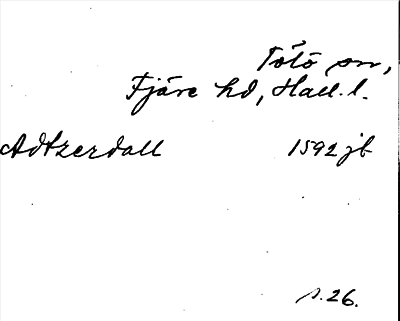 Tölö sn,
Fjäre hd, Hall. l.
Adtzerdall 1592 jb
s. 26.